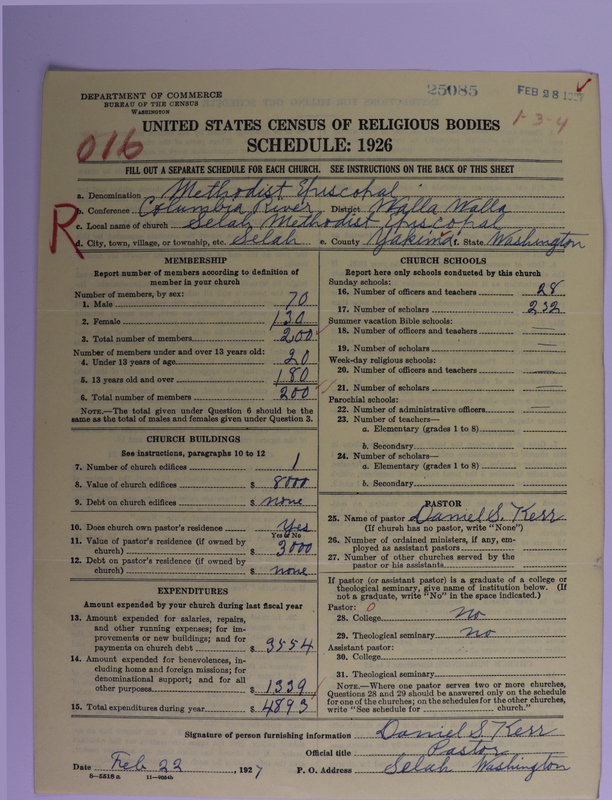 DEPARTMENT OF COMMERCE
BUREAU OF THE CENSUS
WASHINGTON
25085
FEB 28 1927
1-3-4
016
UNITED STATES CENSUS OF RELIGIOUS BODIES
SCHEDULE: 1926
FILL OUT A SEPARATE SCHEDULE FOR EACH CHURCH. SEE INSTRUCTIONS ON THE BACK OF THIS SHEET
R
a. Denomination Methodist Episcopal
b. Conference Columbia River District Walla Walla
c. Local name of church Selah Methodist Episcopal
d. City, town, village, or township, etc. Selah e. County Yakima f. State Washington
MEMBERSHIP
Report number of members according to definition of
member in your church
Number of members, by sex:
1. Male 70
2. Female 130
3. Total number of members 200
Number of members under and over 13 years old:
4. Under 13 years of age 20
5. 13 years old and over 180
6. Total number of members 200
NOTE.—The total given under Question 6 should be
same as the total of males and females given under Question 3.
CHURCH BUILDINGS
See instructions, paragraphs 10 to 12
7. Number of church edifices 1
8. Value of church edifices $ 8000
9. Debt on church edifices $ none
10. Does church own pastor's residence Yes
Yes or No
11. Value of pastor's residence (if owned by
church) $ 3000
12. Debt on pastor's residence (if owned by
church) $ none
EXPENDITURES
Amount expended by your church during last fiscal year
13. Amount expended for salaries, repairs,
and other running expenses; for im-
provements or new buildings; and for
payments on church debt $ 3554
14. Amount expended for benevolences, in-
cluding home and foreign missions; for
denominational support; and for all
other purposes $ 1339
15. Total expenditures during year $ 4893
CHURCH SCHOOLS
Report here only schools conducted by this church
Sunday schools:
16. Number of officers and teachers 28
17. Number of scholars 232
Summer vacation Bible schools:
18. Number of officers and teachers —
19. Number of scholars —
Week-day religious schools:
20. Number of officers and teachers —
21. Number of scholars —
Parochial schools:
22. Number of administrative officers
23. Number of teachers—
a. Elementary (grades 1 to 8)
b. Secondary
24. Number of scholars—
a. Elementary (grades 1 to 8)
b. Secondary
PASTOR
25. Name of pastor Daniel S. Kerr
(If church has no pastor, write "None")
26. Number of ordained ministers, if any, em-
ployed as assistant pastors
27. Number of other churches served by the
pastor or his assistants
If pastor (or assistant pastor) is a graduate of a college or
theological seminary, give name of institution below. (If
not a graduate, write "No" in the space indicated.)
Pastor: 0
28. College no
29. Theological seminary no
Assistant pastor:
30. College
31. Theological seminary
NOTE.—Where one pastor serves two or more churches,
Questions 28 and 29 should be answered only on the schedule
for one of the churches; on the schedules for the other churches,
write "See schedule for church."
Signature of person furnishing information Daniel S. Kerr
Official title Pastor
Date Feb 22, 1927 P. O. Address Selah Washington